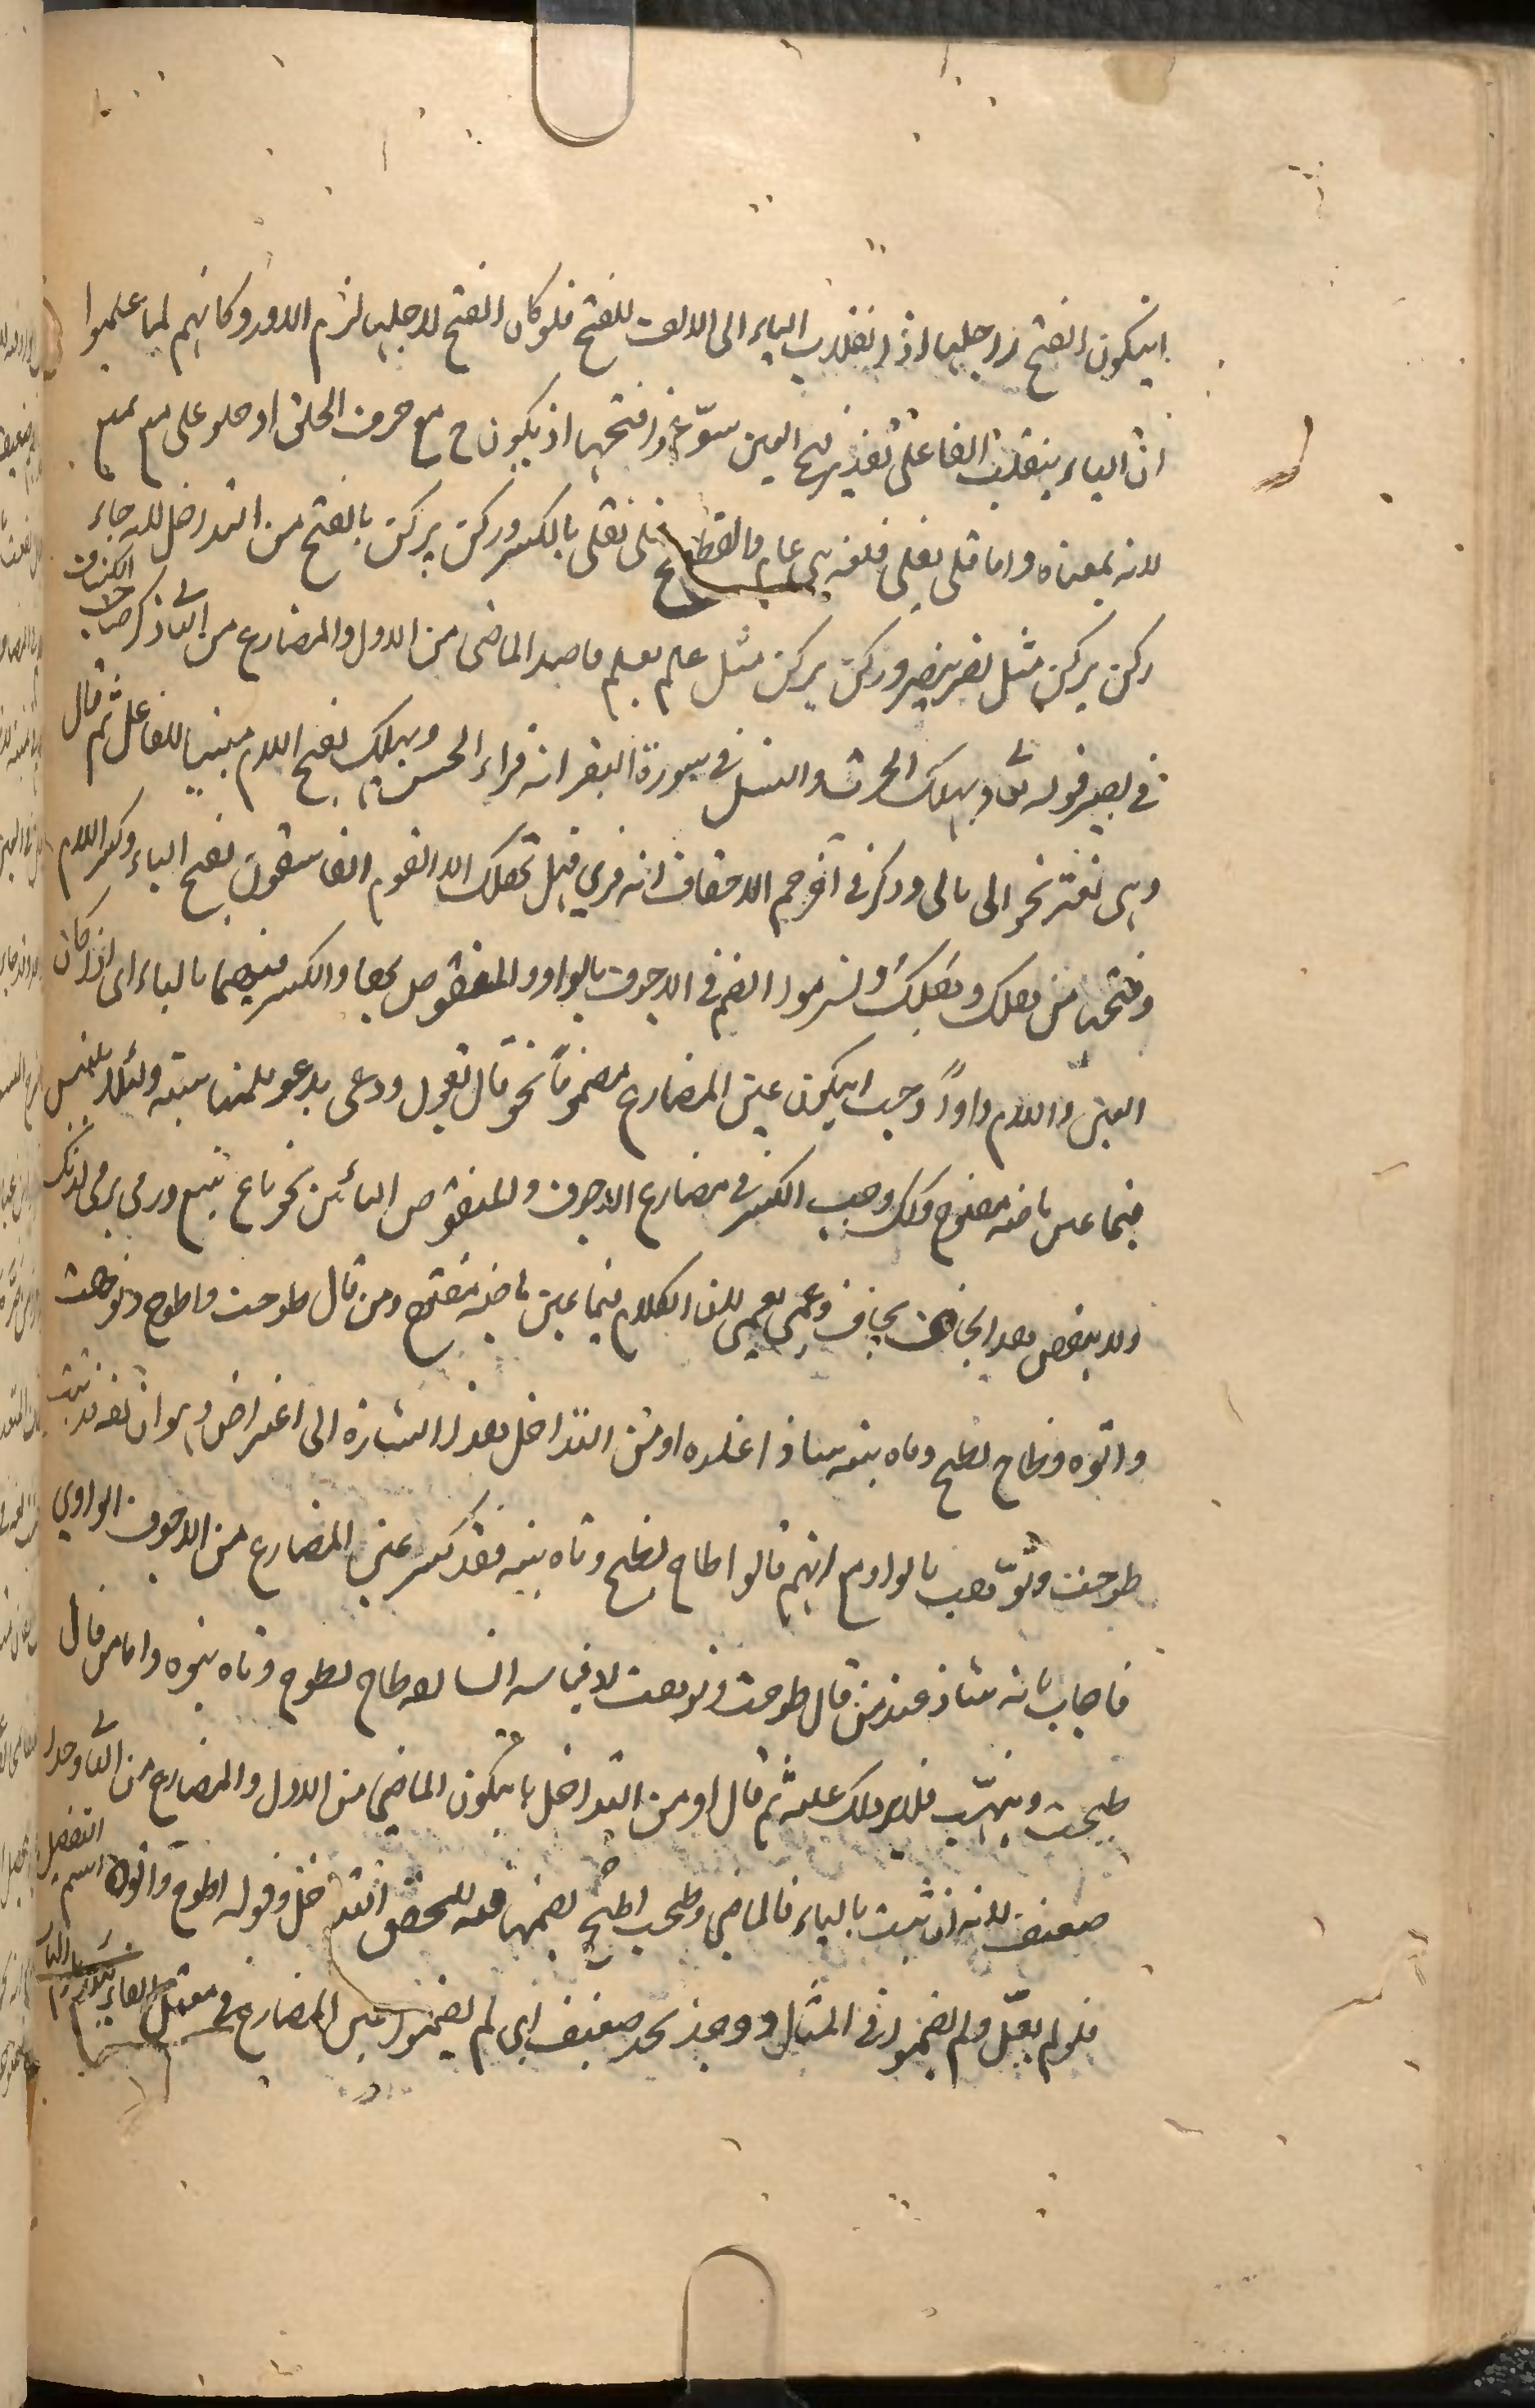 ان يكون الفتح لاجلها اذ انقلاب الياء الى الالف للفتح فلو كان الفتح لاجلها لزم الدور وكانهم لما علموا
ان الياء ينقلب الفا على تقدير فتح العين سوّغوا فتحها اذ يكون ح مع حرف الحلق او حملوا على منع يمنع
لانه بمعناه واما قلى يقلى فلغة بنى عامر والفصيح قلى يقلى بالكسر وركن يركن بالفتح من التداخل لانه جاء
ركن يركن مثل نصر ينصر وركن يركن مثل علم يعلم فاخذ الماضى من الاول والمضارع من الثانى ذكر صاحب الكشاف
فى تفسير قوله تعالى ويهلك الحرث والنسل فى سورة البقرة انه قراء الحسن ويهلك بفتح اللام مبنيا للفاعل ثم قال
وهى لغة نحو ابى يابى وذكر فى آخر حم الاحقاف انه قرئ فهل يهلك الا القوم الفاسقون بفتح الياء وكسر اللام
وفتحها من هلك وهلك ولزموا الضم فى الاجوف بالواو والمنقوص بها والكسر فيهما بالياء اى اذا كان
العين واللام واواً وجب ان يكون عين المضارع مضموماً نحو قال يقول ودعى يدعو للمناسبة ولئلا يلتبس
فيما عين ماضيه مفتوح وكذلك وجب الكسر فى مضارع الاجوف والمنقوص اليائين نحو باع يبيع ورمى يرمى لذلك
ولا ينقض هذا بخاف يخاف وعمى يعمى لان الكلام فيما عين ماضيه مفتوح ومن قال طوحت واطوح وتوهت
واتوه وطاح يطيح وتاه يتيه شاذ عنده او من التداخل هذا اشارة الى اعتراض وهو ان لغة ثبتت
طوحت وتوّهت بالواو مع انهم قالوا طاح يطيح وتاه يتيه فقد كسر عين المضارع من الاجوف الواوي
فاجاب بانه شاذ عند من قال طوحت وتوهت لان قياس لغة طاح يطوح وتاه يتوه واما من قال
طيحت وتيهّت فلا يرد ذلك عليه ثم قال او من التداخل بان يكون الماضى من الاول والمضارع من الثانى وهذا
ضعيف لانه ان ثبت بالياء فالماضى وطحت اطيح بضمها فلا يتحقق التداخل وقوله اطوح واتوه اسم التفضيل
فلو لم يعلّ ولم يضموا فى المثال ووجد يجد ضعيف اى لم يضموا عين المضارع فى معتل الفاء